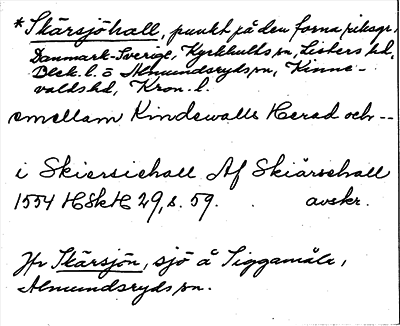 *Skärsjöhall, punkt på den forna riksgr.
Danmark-Sverige, Kyrkhults sn, Listers hd,
Blek. l. o Almundsryds sn, Kinne-
valds hd, Kron. l.
emellam Kindewalle Herad och --
i Skiersiehall Af Skiärsehall
1554 HSkH 29, s. 59. avskr.
Jfr Skärsjön, sjö å Siggamåla,
Almundsryds sn.